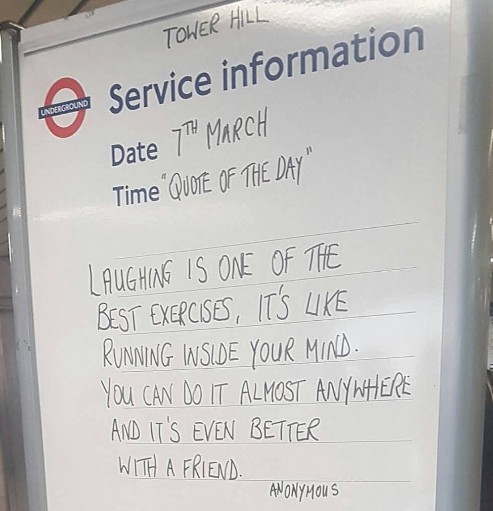 TOWER HILL
UNDERGROUND
Service information
Date 7TH MARCH
Time "QUOTE OF THE DAY"
LAUGHING IS ONE OF THE
BEST EXERCISES, IT'S LIKE
RUNNING INSIDE YOUR MIND.
YOU CAN DO IT ALMOST ANYWHERE
AND IT'S EVEN BETTER
WITH A FRIEND.
ANONYMOUS